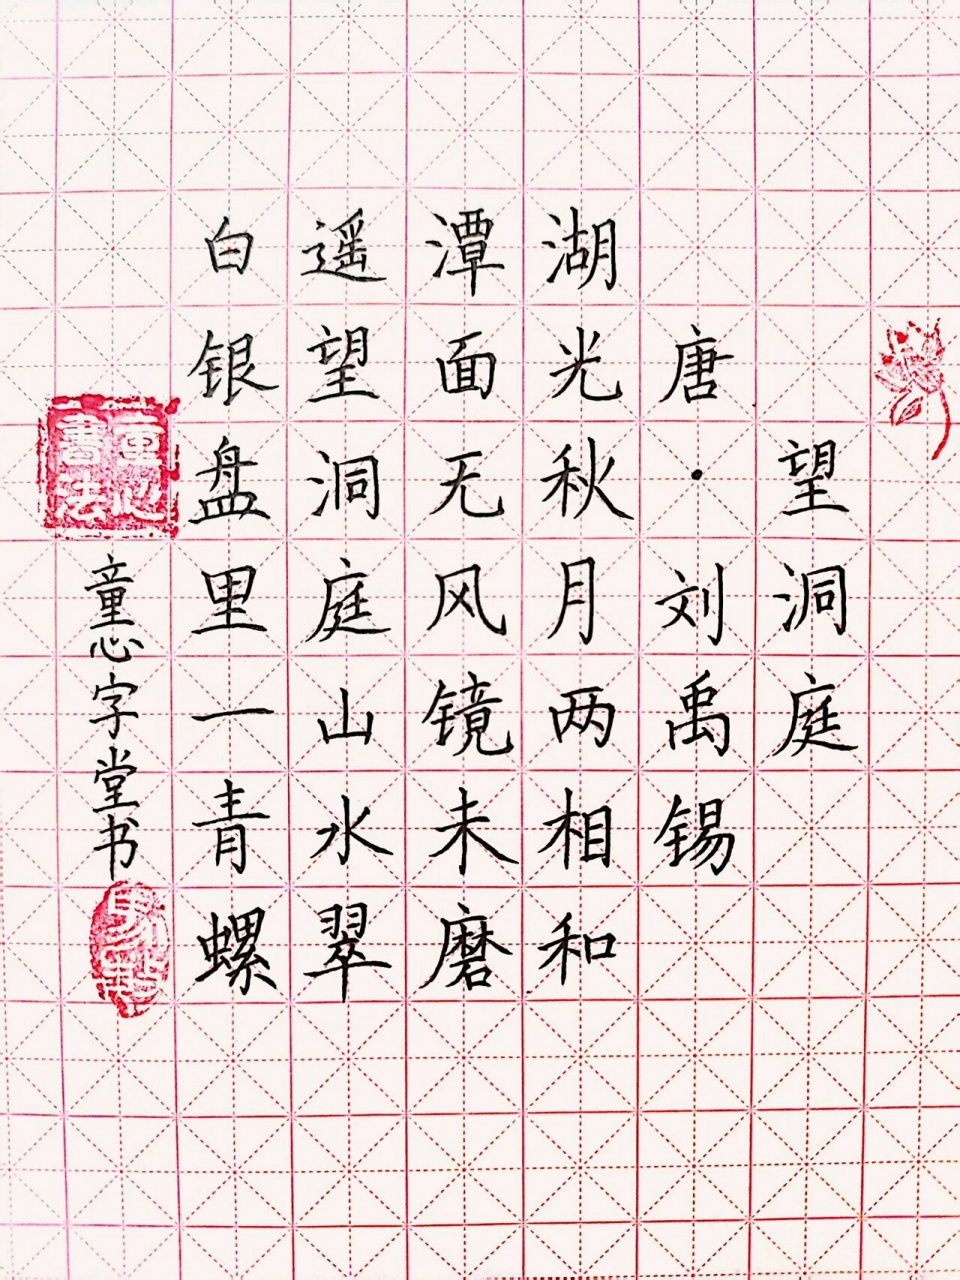 望洞庭
唐·刘禹锡
湖光秋月两相和
潭面无风镜未磨
遥望洞庭山水翠
白银盘里一青螺
童心字堂书
童心書法